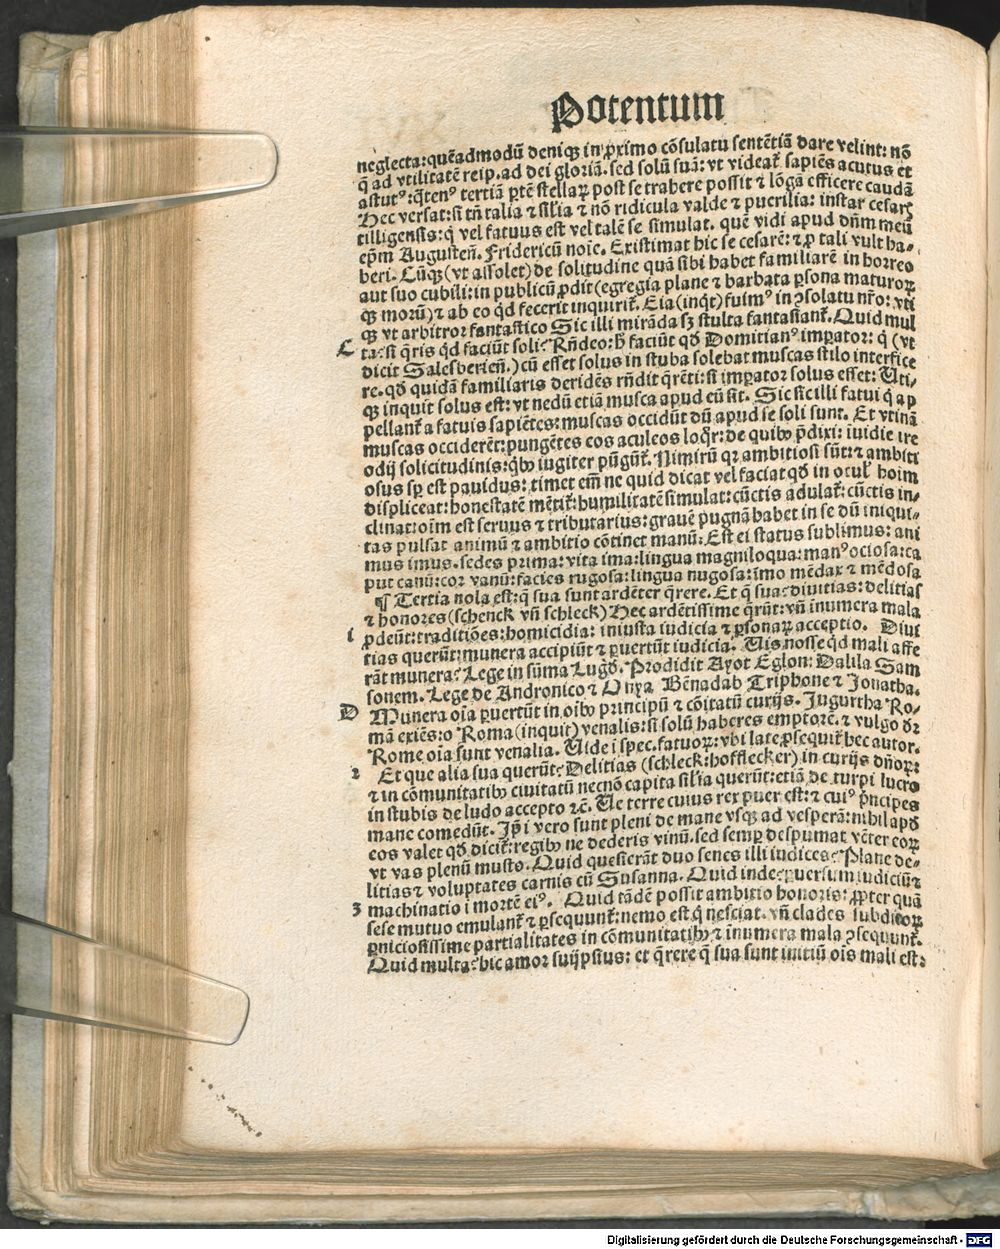 Potentum
neglecta: quēadmodū deniqꝫ in ꝓximo cōsulatu sentētiā dare velint: nō
q̄ ad vtilitatē reip. ad dei gloriā. sed solū suā: vt videat᷑ sapiēs acutus et
astutꝰ: q̄tenꝰ tertiā ꝑtē stellaꝝ post se trahere possit ⁊ lōgā efficere caudā
Hec versat: si tn̄ talia ⁊ silia ⁊ nō ridicula valde ⁊ puerilia: instar cesarꝭ
tilligensis: q̇ vel fatuus est vel talē se simulat. quē vidi apud dn̄m meū
ep̄m Augusten̄. Fridericū noīe. Existimat hic se cesarē: ⁊ ꝓ tali vult ha-
beri. Cūqꝫ (vt assolet) de solitudine quā sibi habet familiarē in horreo
aut suo cubili: in publicū ꝓdit (egregia plane ⁊ barbata ꝑsona maturoꝝ
qꝫ morū) ⁊ ab eo qd̄ fecerit inquirit᷑. Eia (inqt) fuimꝰ in ꝯsolatu nr̄o: vti
qꝫ vt arbitror fantastico Sic illi mirāda sꝫ stulta fantasiant᷑. Quid mul
C ta: si q̄ris qd̄ faciūt soli: Rn̄deo: hͦ faciūt qd̄ Domitianꝰ imꝑator: q̇ (vt
dicit Salesberien̄.) cū esset solus in stuba solebat muscas stilo interfice
re. qd̄ quidā familiaris deridēs rn̄dit q̄rēti: si imꝑator solus esset: Uti-
qꝫ inquit solus est: vt nedū etiā musca apud eū sit. Sic sic illi fatui q̇ ap
pellant᷑ a fatuis sapiētes: muscas occidūt dū apud se soli sunt. Et vtinā
muscas occiderēt: pungētes eos aculeos loq̄r: de quibꝫ p̄dixi: īuidie ire
odij solicitudinis: q̇bꝫ iugiter pūgūt᷑. Nimirū qꝛ ambitiosi sūt: ⁊ ambiti
osus sꝑ est pauidus: timet em̄ ne quid dicat vel faciat qd̄ in ocul᷒ hoīm
displiceat: honestatē mētit᷑: humilitatē simulat: cūctis adulat᷑: cūctis in-
clinat: oīm est seruus ⁊ tributarius: grauē pugnā habet in se dū iniqui-
tas pulsat animū ⁊ ambitio cōtinet manū: Est ei status sublimus: ani
mus imus. sedes prima: vita ima: lingua magniloqua: manꝰ ociosa: ca
put canū: cor vanū: facies rugosa: lingua nugosa: īmo mēdax ⁊ mēdosa
¶ Tertia nola est: q̄ sua sunt ardēter q̄rere. Et q̄ sua: diuitias: delitias
⁊ honores (schenck vn̄ schleck) Hec ardētissime q̄rūt: vn̄ īnumera mala
1 ꝓdeūt: traditiōes: homicidia: iniusta iudicia ⁊ ꝑsonaꝝ acceptio. Diui
tias querūt: munera accipiūt ⁊ ꝑuertūt iudicia. Uis nosse qd̄ mali affe
rāt munera: Lege in sūma Lugd̄. Prodidit Ayot Eglon: Dalila Sam
sonem. Lege de Andronico ⁊ Onya Bēnadab Triphone ⁊ Jonatha.
D Munera oīa ꝑuertūt in oībꝫ principū ⁊ cōitatū curijs. Jugurtha Ro-
mā exiēs: o Roma (inquit) venalis: si solū haberes emptorē. ⁊ vulgo dr̄
Rome oīa sunt venalia. Uide ī spec. fatuoꝝ: vbi late ꝓsequit᷑ hec autor.
2 Et que alia sua querūt: Delitias (schleck: hofflecker) in curijs dn̄oꝝ:
⁊ in cōmunitatibꝫ ciuitatū necnō capita silia querūt: etiā de turpi lucro
in stubis de ludo accepto ⁊c̄. Ue terre cuius rex puer est: ⁊ cuiꝰ p̄ncipes
mane comedūt. Jp̄i vero sunt pleni de mane vsqꝫ ad vesperā: nihil apd̄
eos valet qd̄ dicit᷑: regibꝫ ne dederis vinū. sed semꝑ despumat vēter eoꝝ
vt vas plenū musto. Quid quesierāt duo senes illi iudices: Plane de-
litias ⁊ voluptates carnis cū Susanna. Quid inde: ꝑuersum iudiciū ⁊
machinatio ī mortē eiꝰ. Quid tādē possit ambitio honoris: ꝓpter quā
3 sese mutuo emulant᷑ ⁊ ꝑsequunt᷑: nemo est q̇ nesciat. vn̄ clades subditoꝝ
ꝑniciosissime partialitates in cōmunitatibꝫ ⁊ īnumera mala ꝯsequunt᷑.
Quid multa: hic amor suijpsius: et q̄rere q̄ sua sunt initiū oīs mali est:
Digitalisierung gefördert durch die Deutsche Forschungsgemeinschaft - DFG